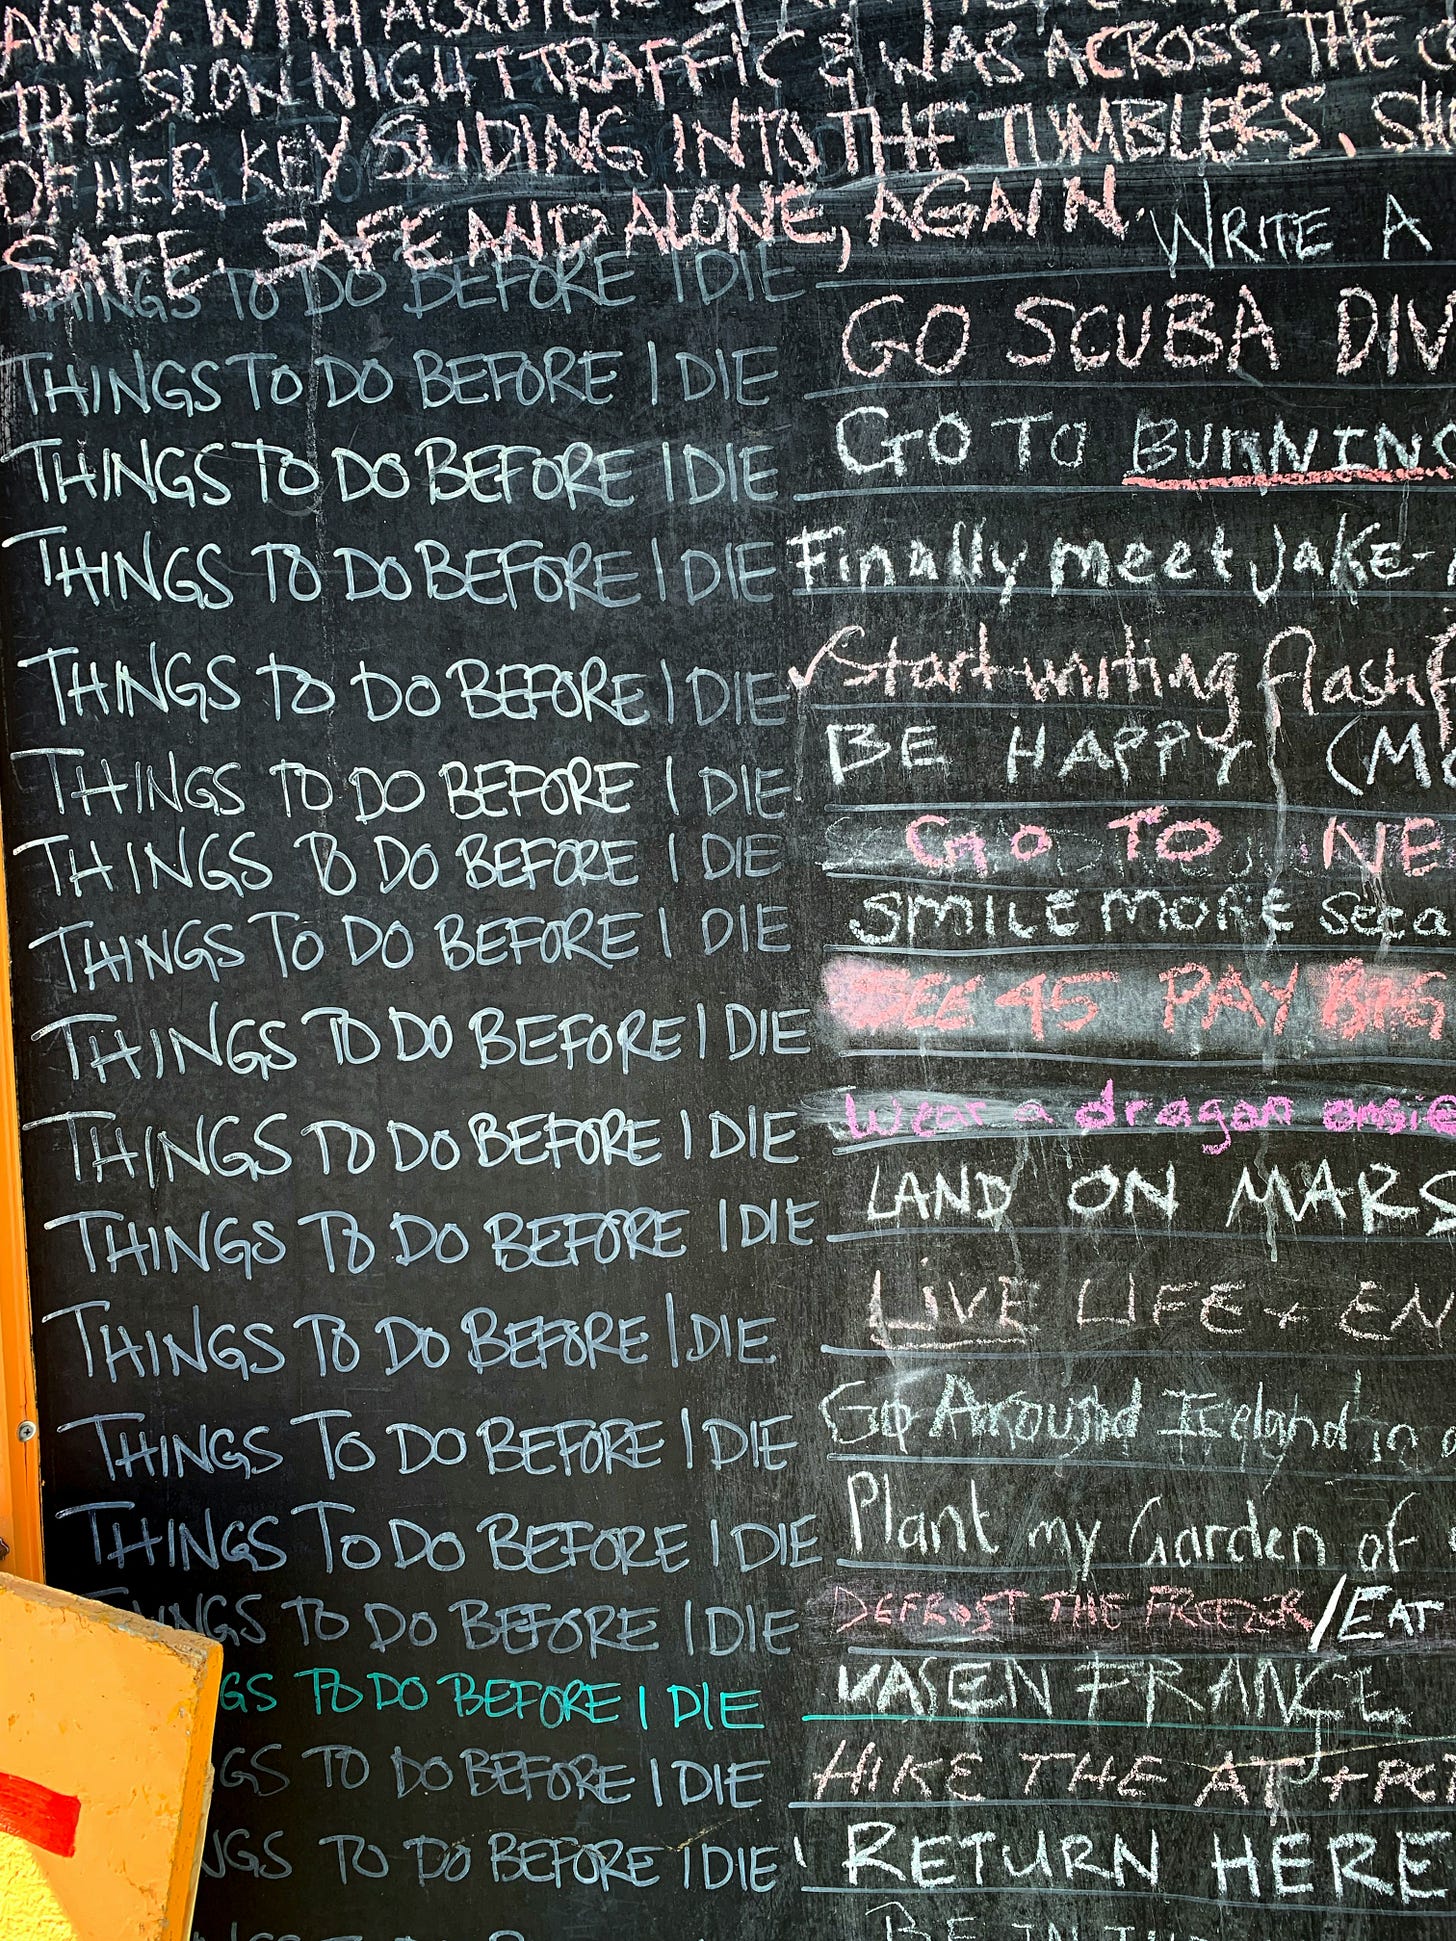 AWAY. WITH
THE SLOW NIGHT TRAFFIC & WAS ACROSS. THE
OF HER KEY SLIDING INTO THE TUMBLERS. SH
SAFE. SAFE AND ALONE, AGAIN.
THINGS TO DO BEFORE I DIE WRITE A
THINGS TO DO BEFORE I DIE GO SCUBA DIV
THINGS TO DO BEFORE I DIE GO TO BURNING
THINGS TO DO BEFORE I DIE Finally meet Jake-
THINGS TO DO BEFORE I DIE Start writing flash f
THINGS TO DO BEFORE I DIE BE HAPPY (M
THINGS TO DO BEFORE I DIE GO TO NE
THINGS TO DO BEFORE I DIE SMILE MORE
THINGS TO DO BEFORE I DIE SEE 45 PAY BIG
THINGS TO DO BEFORE I DIE Wear a dragon onsie
THINGS TO DO BEFORE I DIE LAND ON MARS
THINGS TO DO BEFORE I DIE LIVE LIFE + EN
THINGS TO DO BEFORE I DIE Go Around Iceland in
THINGS TO DO BEFORE I DIE Plant my Garden of
NGS TO DO BEFORE I DIE DEFROST THE FREEZER / EAT
GS TO DO BEFORE I DIE FRANCE
GS TO DO BEFORE I DIE HIKE THE AT +
NGS TO DO BEFORE I DIE RETURN HERE
BE IN